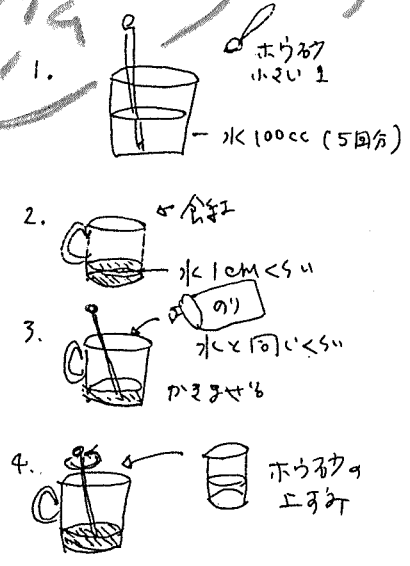 1.
ホウ砂
小さい1
水100cc (5回分)
2.
食紅
水1cmくらい
3.
のり
水と同じくらい
かきまぜる
4.
ホウ砂の
上ずみ